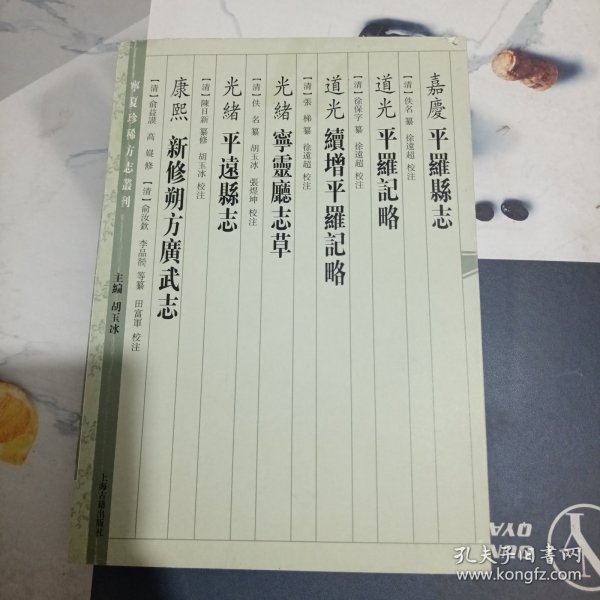 嘉慶 平羅縣志
[清]佚名 纂 徐遠超 校注
道光 平羅記略
[清]徐保字 纂 徐遠超 校注
道光 續增平羅記略
[清]張梯 纂 徐遠超 校注
光緒 寧靈廳志草
[清]佚名 纂 胡玉冰 張煜坤 校注
光緒 平遠縣志
[清]陳日新 纂修 胡玉冰 校注
康熙 新修朔方廣武志
[清]俞益謨 高嶷 修 [清]俞汝欽 李品 等纂 田富軍 校注
寧夏珍稀方志叢刊
主編 胡玉冰
上海古籍出版社
QYA
孔夫子旧书网
www.kongfz.com